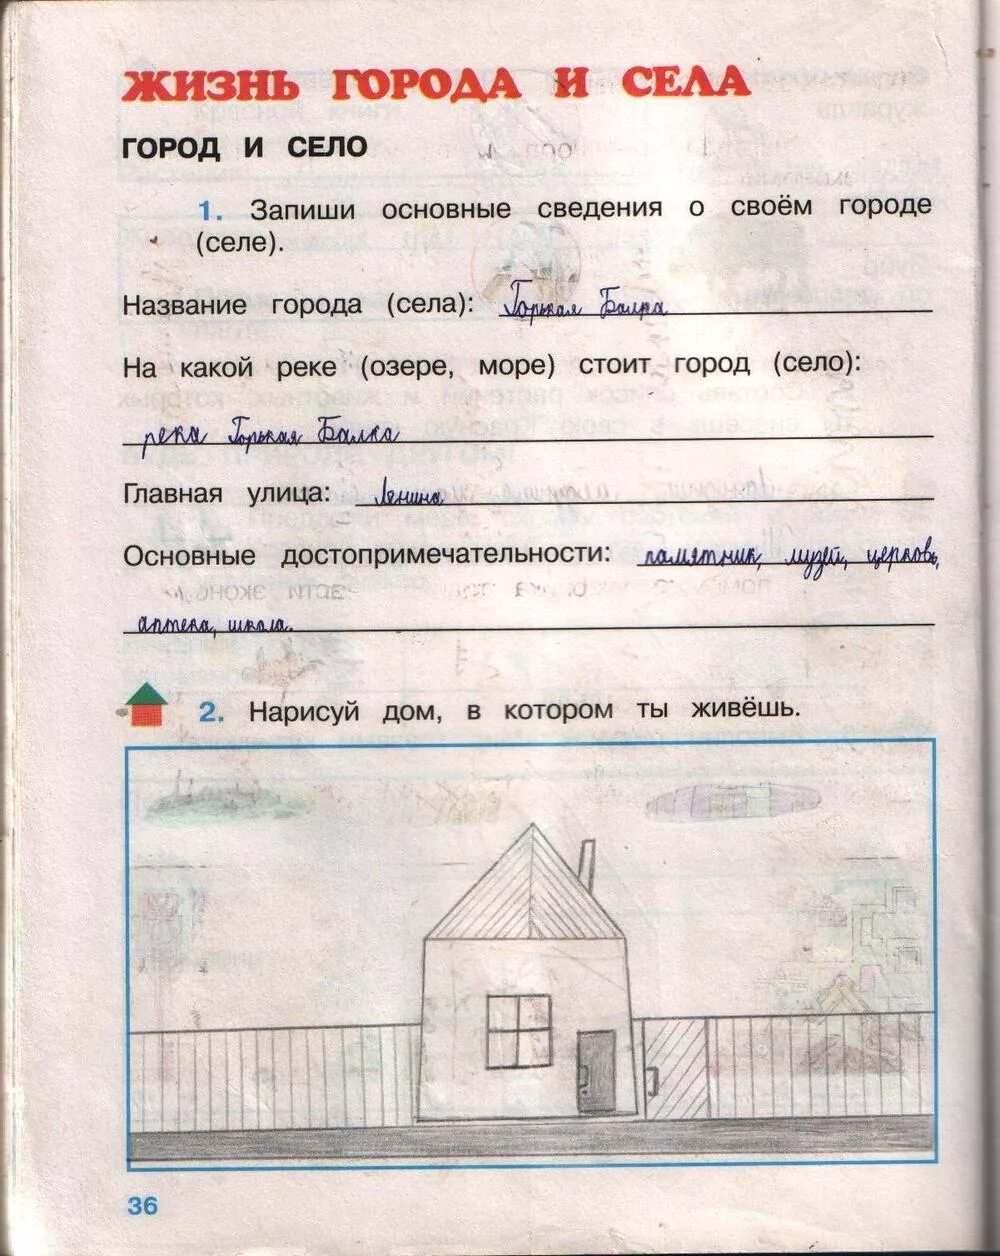 ЖИЗНЬ ГОРОДА И СЕЛА
ГОРОД И СЕЛО
1. Запиши основные сведения о своём городе
(селе).
Название города (села): Горькая Балка
На какой реке (озере, море) стоит город (село):
река Горькая Балка
Главная улица: Ленина
Основные достопримечательности: памятник, музей, церковь,
аптека, школа.
2. Нарисуй дом, в котором ты живёшь.
36